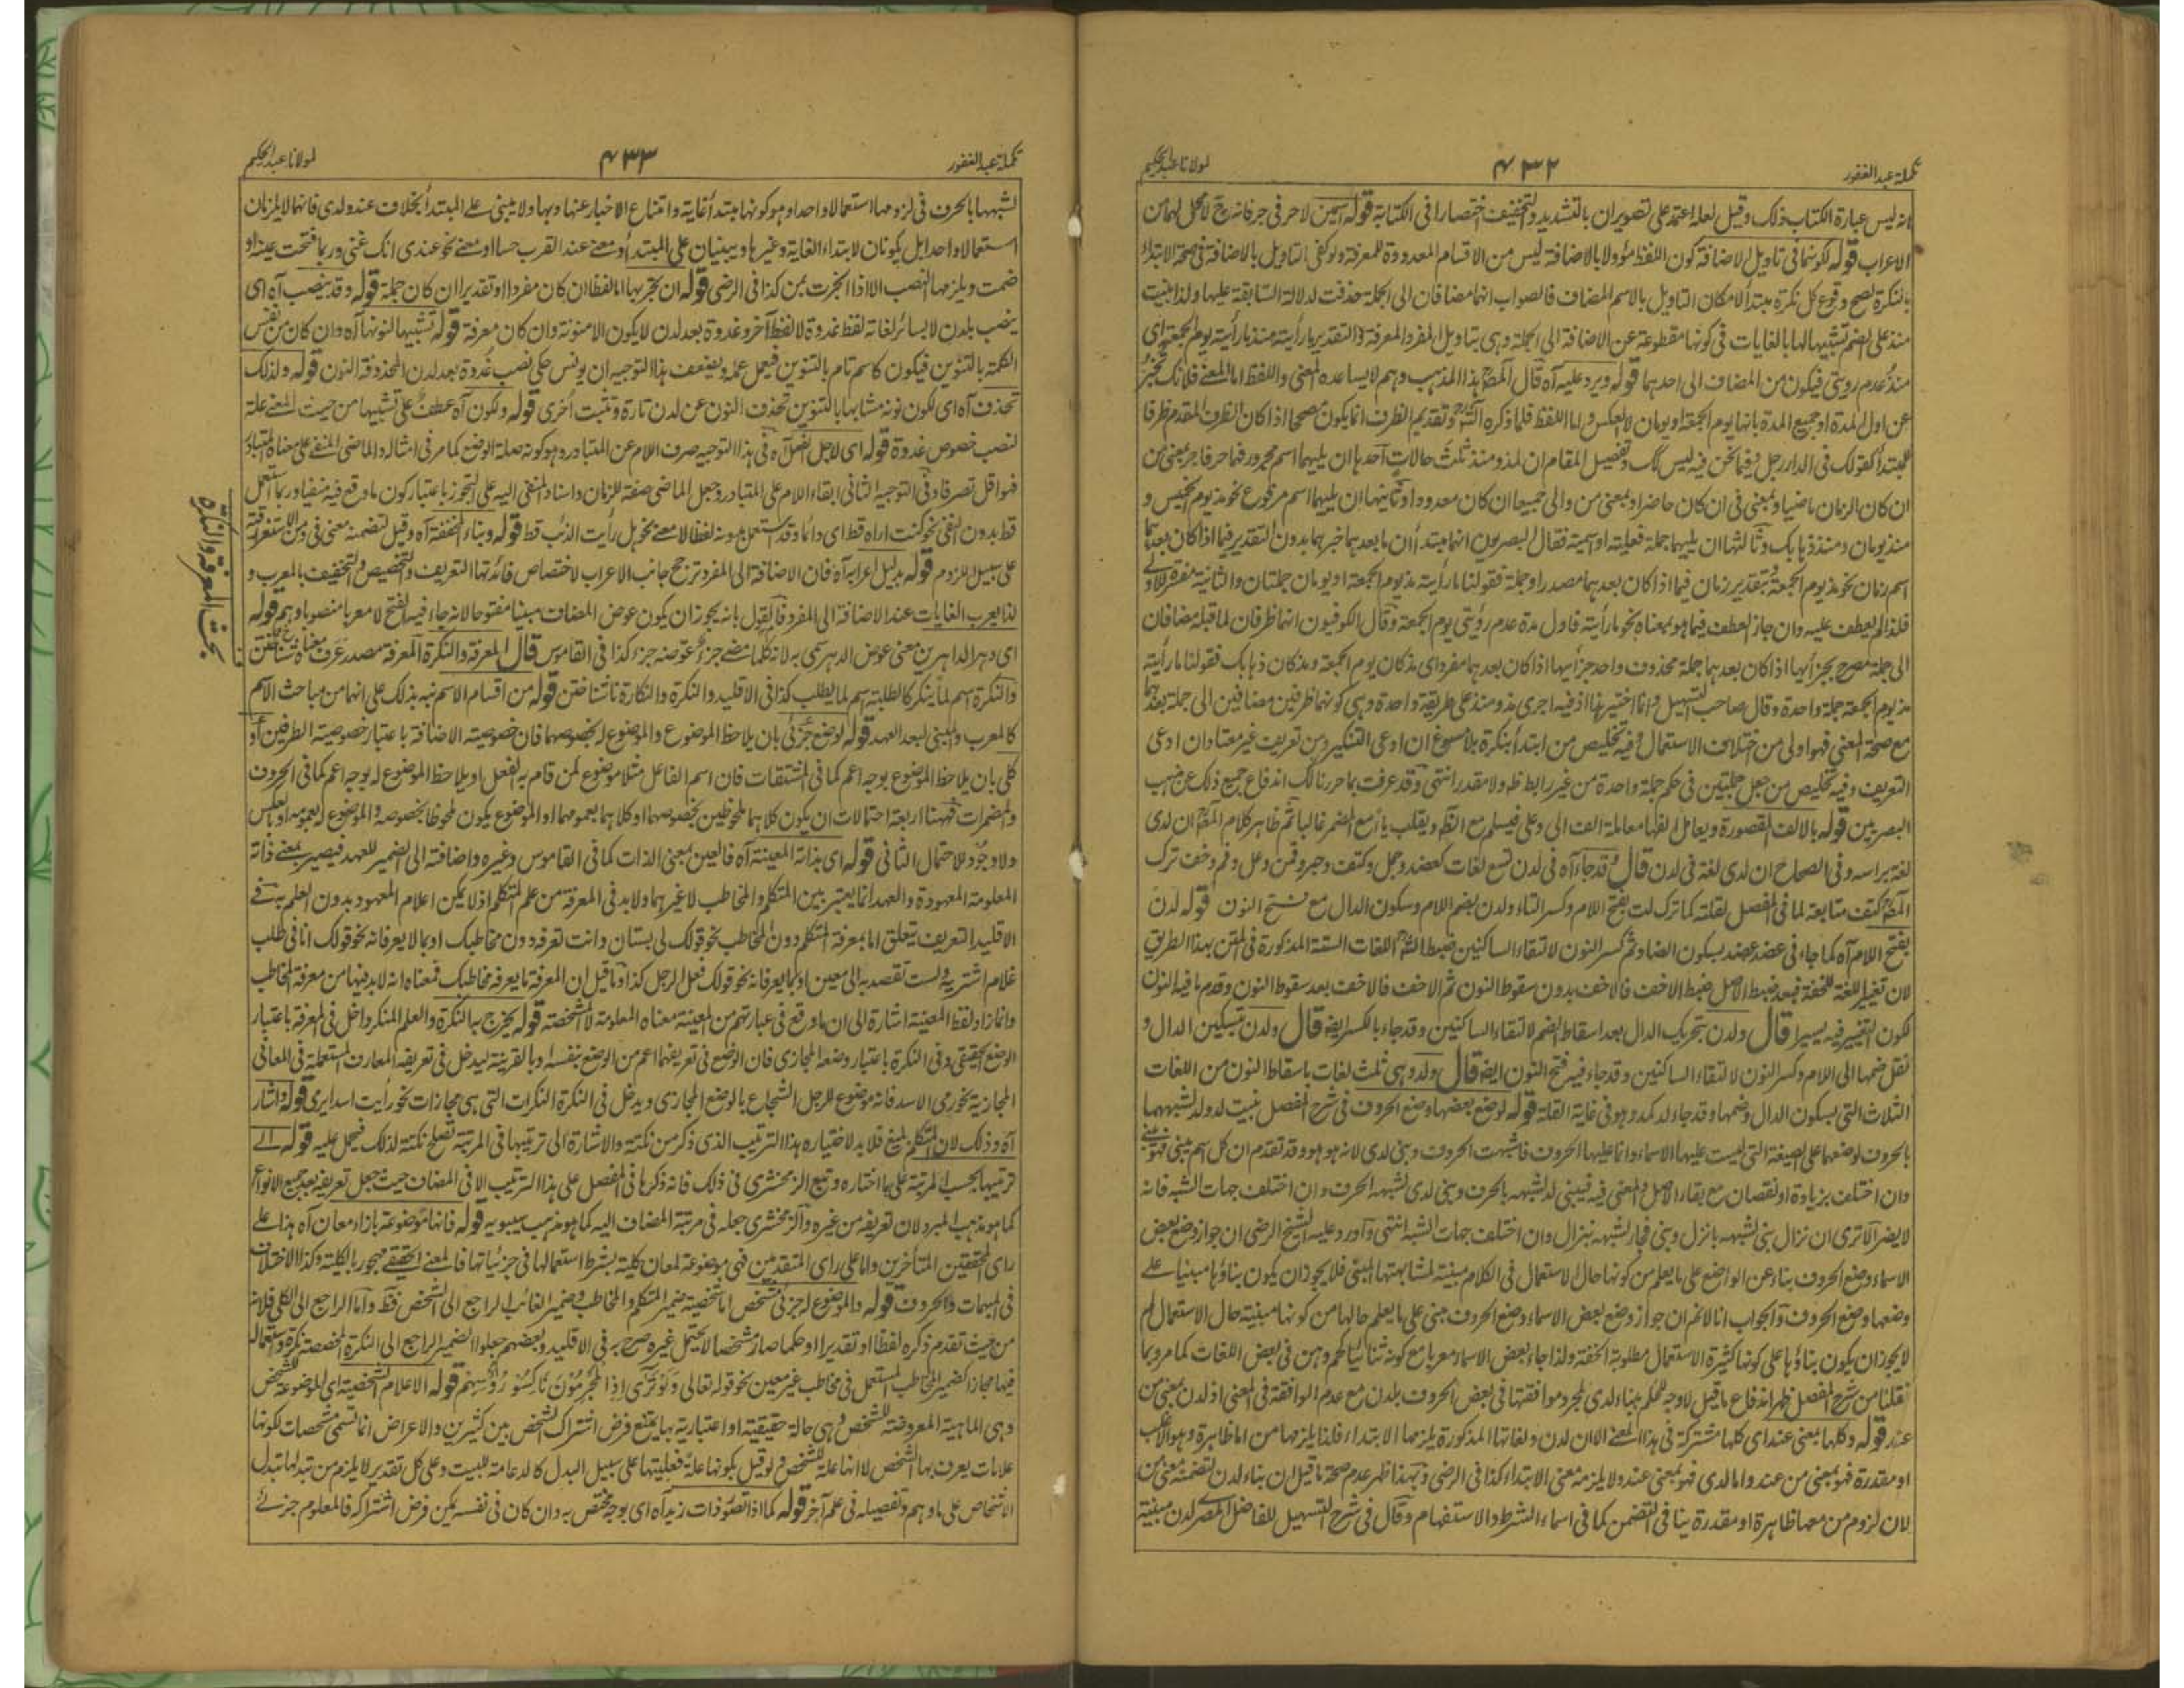 تكملة عبد الغفور
۴۳۲
لمولانا عبد الحكيم
انه ليس عبارة الكتاب ذلك وقيل لعله اعتمد على تصوير ان بالتشديد والتخفيف اختصارا في الكتابة قوله اسمين لا حرفي جر فانه ح لا محل لهما من
الاعراب قوله لكونهما في تاويل الاضافة كون اللفظ مؤولا بالاضافة ليس من الاقسام المعدودة للمعرفة ولو كفى التاويل بالاضافة في صحة الابتداء
بالنكرة لصح وقوع كل نكرة مبتدأ لامكان التاويل بالاسم المضاف فالصواب انهما مضافان الى الجملة حذفت لدلالة السابقة عليها ولذا بنيت
منذ على الضم تشبيها لها بالغايات في كونها مقطوعة عن الاضافة الى الجملة وهي بتاويل المفرد المعرفة والتقدير ما رأيته منذ ما رأيته يوم الجمعة اي
منذ عدم رويتي فيكون من المضاف الى احدهما قوله ويرد عليه آه قال المص هذا المذهب وهم لا يساعده المعنى واللفظ اما المعنى فلانك تخبر
عن اول المدة او جميع المدة بانها يوم الجمعة او يومان لا بالعكس واما اللفظ فلما ذكره الش وتقديم الظرف انما يكون مصححا اذا كان الظرف المقدم ظرفا
للمبتدأ كقولك في الدار رجل وفيما نحن فيه ليس كك وتفصيل المقام ان لمذ ومنذ ثلث حالات احدها ان يليهما اسم مجرور فهما حرفا جر بمعنى من
ان كان الزمان ماضيا وبمعنى في ان كان حاضرا وبمعنى من والى جميعا ان كان معدودا وثانيها ان يليهما اسم مرفوع نحو مذ يوم الخميس و
منذ يومان ومنذ ذهابك وثالثها ان يليهما جملة فعلية او اسمية فقال البصريون انهما مبتدأان ما بعدهما خبرهما بدون التقدير فيما اذا كان بعدهما
اسم زمان نحو مذ يوم الجمعة وبتقدير زمان فيما اذا كان بعدهما مصدر او جملة فقولنا ما رأيته مذ يوم الجمعة او يومان جملتان والثانية مفسرة للاولى
فلذا لم يعطف عليه وان جاز العطف فيما هو بمعناه نحو ما رأيته فاول مدة عدم رؤيتي يوم الجمعة وقال الكوفيون انهما ظرفان لما قبله مضافان
الى جملة مصرح بجزأيها اذا كان بعدهما جملة محذوف واحد جزأيها اذا كان بعدهما مفرد اي مذ كان يوم الجمعة ومذ كان ذهابك فقولنا ما رأيته
مذ يوم الجمعة جملة واحدة وقال صاحب التسهيل وانما اختير هذا اذ فيه اجرى مذ ومنذ على طريقة واحدة وهي كونهما ظرفين مضافين الى جملة بعدهما
مع صحة المعنى فهو اولى من اختلاف الاستعمال وفيه تخليص من ابتدأ بنكرة بلا مسوغ ان ادعى التنكير ومن تعريف غير معتاد ان ادعى
التعريف وفيه تخليص من جعل جملتين في حكم جملة واحدة من غير رابط ظ ولا مقدر انتهى وقد عرفت بما حررنا لك اندفاع جميع ذلك عن مذهب
البصريين قوله بالالف المقصورة ويعامل الفها معاملة الف الى وعلى فيسلم مع الظ ويقلب ياء مع المضمر غالبا ثم ظاهر كلام المص ان لدى
لغة براسه وفي الصحاح ان لدى لغة في لدن قال وقد جاء آه في لدن تسع لغات كعضد وجبل وكتف وجير وقمن وعل وفم وخف ترك
المص كتف متابعة لما في المفصل لقلته كما ترك لت بفتح اللام وكسر التاء ولدن بضم اللام وسكون الدال مع فتح النون قوله لدن
بفتح اللام آه كما جاء في عضد عضد بسكون الضاد ثم كسر النون لالتقاء الساكنين ضبط الش اللغات الستة المذكورة في المتن بهذا الطريق
لان تغيير اللغة للخفة فبعد ضبط الاصل ضبط الاخف فالاخف بدون سقوط النون ثم الاخف فالاخف بعد سقوط النون وقدم ما فيه النون
لكون التغيير فيه يسيرا قال ولدن بتحريك الدال بعد اسقاط الضم لالتقاء الساكنين وقد جاء بالكسر ايضا قال ولدن بتسكين الدال و
نقل ضمها الى اللام وكسر النون لالتقاء الساكنين وقد جاء فيه فتح النون ايضا قال ولد وهي ثلث لغات باسقاط النون من اللغات
الثلاث التي بسكون الدال وضمها وقد جاء لد كمد وهو في غاية القلة قوله لوضع بعضها وضع الحروف في شرح المفصل بنيت لد ولد لشبههما
بالحروف لوضعهما على الصيغة التي ليست عليها الاسماء وانما عليها الحروف فاشبهت الحروف وبني لدى لانه هو هو وقد تقدم ان كل اسم بني فهو مبني
وان اختلف بزيادة او نقصان مع بقاء الاصل والمعنى فيه فيبنى لد لشبهه بالحرف وبني لدى لشبهه الحرف وان اختلف جهات الشبه فانه
لا يضر الا ترى ان نزال بني لشبهه بانزل وبني فجار لشبهه بنزال وان اختلف جهات الشبه انتهى وآورد عليه الشيخ الرضي ان جواز وضع بعض
الاسماء وضع الحروف بناء عن الواضع على ما يعلم من كونها حال الاستعمال في الكلام مبنية لمشابهتها المبني فلا يجوز ان يكون بناؤها مبنيا على
وضعها وضع الحروف وآلجواب انا لا نم ان جواز وضع بعض الاسماء وضع الحروف مبني على ما يعلم حالها من كونها مبنية حال الاستعمال لم
لا يجوز ان يكون بناؤها على كونها كثيرة الاستعمال مطلوبة الخفة ولذا جاء بعض الاسماء معربا مع كونه ثنائيا كهم وهن في بعض اللغات كما مر وبما
نقلنا من شرح المفصل ظهر اندفاع ما قيل لا وجه للحكم ببناء لدى لمجرد موافقتها في بعض الحروف بلدن مع عدم الموافقة في المعنى اذ لدن بمعنى من
عند قوله وكلها بمعنى عند اي كلها مشتركة في هذا المعنى الا ان لدن ولغاتها المذكورة يلزمها الابتداء فلذا يلزمها من اما ظاهرة وهو الاغلب
او مقدرة فهو بمعنى من عند واما لدى فهو بمعنى عند ولا يلزمه معنى الابتداء كذا في الرضي وبهذا ظهر عدم صحة ما قيل ان بناء لدن لتضمنه معنى من
لان لزوم من معها ظاهرة او مقدرة ينافي التضمن كما في اسماء الشرط والاستفهام وقال في شرح التسهيل للفاضل المصر لدن مبنية
تكملة عبد الغفور
۴۳۳
لمولانا عبد الحكيم
لشبهها بالحرف في لزومها استعمالا واحدا وهو كونها مبتدأ غاية وامتناع الاخبار عنها وبها ولا يبنى على المبتدأ بخلاف عند ولدى فانهما لا يلزمان
استعمالا واحدا بل يكونان لابتداء الغاية وغيرها ويبنيان على المبتدأ ومعنى عند القرب حسا او معنى نحو عندي انك غني وربما فتحت عينه او
ضمت ويلزمها النصب الا اذا انجرت بمن كذا في الرضي قوله ان يجر بها اما لفظا ان كان مفردا او تقديرا ان كان جملة قوله وقد ينصب آه اي
ينصب بلدن لا بسائر لغاته لفظ غدوة لا لفظ آخر وغدوة بعد لدن لا يكون الا منونة وان كان معرفة قوله تشبيها لنونها آه وان كان من نفس
الكلمة بالتنوين فيكون كاسم تام بالتنوين فيعمل عمله ويضعف هذا التوجيه ان يونس حكى نصب غدوة بعد لدن المحذوفة النون قوله ولذلك
تحذف آه اي لكون نونه مشابها بالتنوين تحذف النون عن لدن تارة وتثبت اخرى قوله ولكون آه عطف على تشبيها من حيث المعنى علة
لنصب خصوص غدوة قوله اي لاجل الفعل آه في هذا التوجيه صرف اللام عن المتبادر وهو كونه صلة الوضع كما مر في امثاله والماضي المنفي على معناه المتبادر
فهو اقل تصرفا وفي التوجيه الثاني ابقاء اللام على المتبادر وجعل الماضي صفة للزمان واسناد المنفي اليه على التجوز باعتبار كون ما وقع فيه منفيا وربما استعمل
قط بدون النفي نحو كنت اراه قط اي دائما وقد استعمل بدونه لفظا لا معنى نحو هل رأيت الذئب قط قوله وبناء المخففة آه وقيل لتضمنه معنى في ومن الاستغراقية
على سبيل اللزوم قوله بدليل اعرابه آه فان الاضافة الى المفرد ترجح جانب الاعراب لاختصاص فائدتها التعريف والتخصيص والتخفيف بالمعرب و
لذا يعرب الغايات عند الاضافة الى المفرد فالقول بانه يجوز ان يكون عوض المضاف مبنيا مفتوحا لانه جاء فيه الفتح لا معربا منصوبا وهم قوله
اي دهر الداهرين معنى عوض الدهر سمي به لانه كلما مضى جزء عوضه جزء كذا في القاموس قال المعرفة والنكرة المعرفة مصدر عرف معناه شناختن
والنكرة اسم لما ينكر كالطلبة اسم لما يطلب كذا في الاقليد والنكرة والنكارة ناشناختن قوله من اقسام الاسم نبه بذلك على انهما من مباحث الاسم
كالمعرب والمبني لبعد العهد قوله لوضع جزئي بان يلاحظ الموضوع والموضوع له بخصوصهما فان خصوصية الاضافة باعتبار خصوصية الطرفين او
كلي بان يلاحظ الموضوع بوجه اعم كما في المشتقات فان اسم الفاعل مثلا موضوع لمن قام به الفعل او يلاحظ الموضوع له بوجه اعم كما في الحروف
والمضمرات فههنا اربعة احتمالات ان يكون كلاهما ملحوظين بخصوصهما او كلاهما بعمومهما او الموضوع يكون ملحوظا بخصوصه والموضوع له بعمومه او بالعكس
ولا وجود للاحتمال الثاني قوله اي بذاته المعينة آه فالعين بمعنى الذات كما في القاموس وغيره واضافته الى الضمير للعهد فيصير بمعنى ذاته
المعلومة المعهودة والعهد انما يعتبر بين المتكلم والمخاطب لا غيرهما ولا بد في المعرفة من علم المتكلم اذ لا يمكن اعلام المعهود بدون العلم به في
الاقليد التعريف يتعلق اما بمعرفة المتكلم دون المخاطب نحو قولك لي بستان وانت تعرفه دون مخاطبك او بما لا يعرفانه نحو قولك انا في طلب
غلام اشتريه ولست تقصد به الى معين او بما يعرفانه نحو قولك فعل الرجل كذا وما قيل ان المعرفة ما يعرفه مخاطبك فمعناه انه لا بد فيها من معرفة المخاطب
وانما زاد لفظ المعينة اشارة الى ان ما وقع في عبارتهم من المعينة معناه المعلومة لا المشخصة قوله يخرج به النكرة والعلم المنكر داخل في المعرفة باعتبار
الوضع الحقيقي وفي النكرة باعتبار وضعه المجازي فان الوضع في تعريفهما اعم من الوضع بنفسه او بالقرينة ليدخل في تعريفه المعارف المستعملة في المعاني
المجازية نحو رمى الاسد فانه موضوع للرجل الشجاع بالوضع المجازي ويدخل في النكرة النكرات التي هي مجازات نحو رأيت اسدا يرمى قوله واشار
آه وذلك لان المتكلم بليغ فلا بد لاختياره هذا الترتيب الذي ذكر من نكتة والاشارة الى ترتيبها في المرتبة تصلح نكتة لذلك فيحمل عليه قوله الى
ترتيبها بحسب المرتبة على ما اختاره وتبع الزمخشري في ذلك فانه ذكرها في المفصل على هذا الترتيب الا في المضاف حيث جعل تعريفه بعد جميع الانواع
كما هو مذهب المبرد لان تعريفه من غيره وآلزمخشري جعله في مرتبة المضاف اليه كما هو مذهب سيبويه قوله فانها موضوعة بازاء معان آه هذا على
راى المحققين المتأخرين واما على راى المتقدمين فهي موضوعة لمعان كلية بشرط استعمالها في جزئياتها فالمعنى الحقيقي مهجور بالكلية وكذا الاختلاف
في المبهمات والحروف قوله والموضوع له جزئي مشخص اما شخصية ضمير المتكلم والمخاطب وضمير الغائب الراجع الى الشخص فظ واما الراجع الى الكلي فلانه
من حيث تقدم ذكره لفظا او تقديرا او حكما صار مشخصا لا يحتمل غيره صرح به في الاقليد وبعضهم جعلوا الضمير الراجع الى النكرة المخصصة نكرة واستعماله
فيها مجاز كضمير المخاطب المستعمل في مخاطب غير معين نحو قوله تعالى وَلَوْ تَرٰى اِذِ الْمُجْرِمُوْنَ نَاكِسُوْ رُؤُسِهِمْ قوله الاعلام الشخصية اي الموضوعة للشخص
وهي الماهية المعروضة للتشخص وهي حالة حقيقية او اعتبارية بها يمتنع فرض اشتراك الشخص بين كثيرين والاعراض انما تسمى مشخصات لكونها
علامات يعرف بها التشخص لا انها علة للتشخص ولو قيل بكونها علة فعليتها على سبيل البدل كالدعامة للبيت وعلى كل تقدير لا يلزم من تبدلها تبدل
الاشخاص على ما وهم وتفصيله في علم آخر قوله كما اذا تصور ذات زيد آه اي بوجه مختص به وان كان في نفسه يمكن فرض اشتراكه فالمعلوم جزئي
بحث المعرفة والنكرة